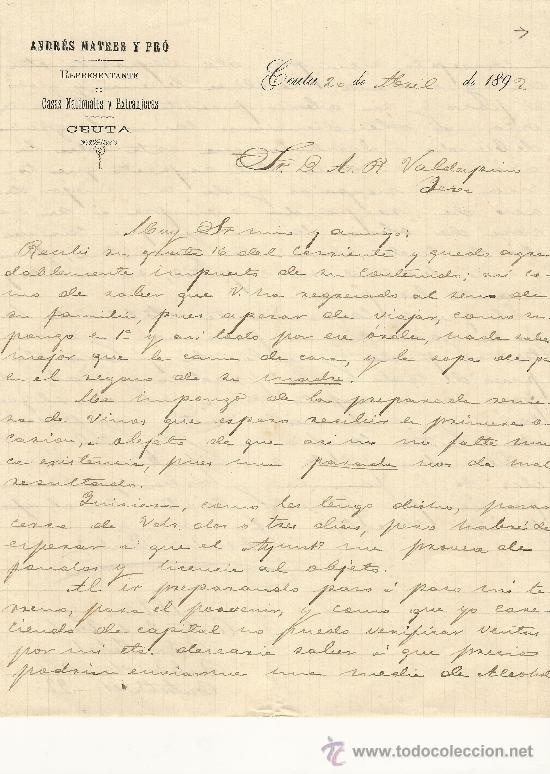 ANDRÉS MATRES Y PRÓ
REPRESENTANTE
DE
Casas Nacionales y Extranjeras
CEUTA
Ceuta 20 de Abril de 1892
Sr. D. A. R. Valdespino
Jerez
Muy Sr mio y amigo:
Recibi su grata 16 del corriente y quedo agra
dablemente impuesto de su contenido; asi co
mo de saber que V. ha regresado al seno de
su familia pues apesar de viajar, como su
pongo en 1ª y asi todo por ese órden, nada sabe
mejor que la cama de casa, y la sopa
en el regazo de su madre.
Me impongo de la preparada reme
sa de Vinos que espero recibir en primera o
casion, á objeto de que asi no me falte nun
ca existencia, pues una parada nos da mal
resultado.
Quisiera, como les tengo dicho, pasar
cerca de Vds. dos ó tres dias, pero habré de
esperar á que el Ayuntº me provea de
fondos y licencia al objeto.
Al ir preparando paso á paso mi te
rreno, para el porvenir, y como que yo care
ciendo de capital no puedo verificar ventas
por mi cta. desearia saber á que precio
podrian enviarme una media de Alcohol
www.todocoleccion.net